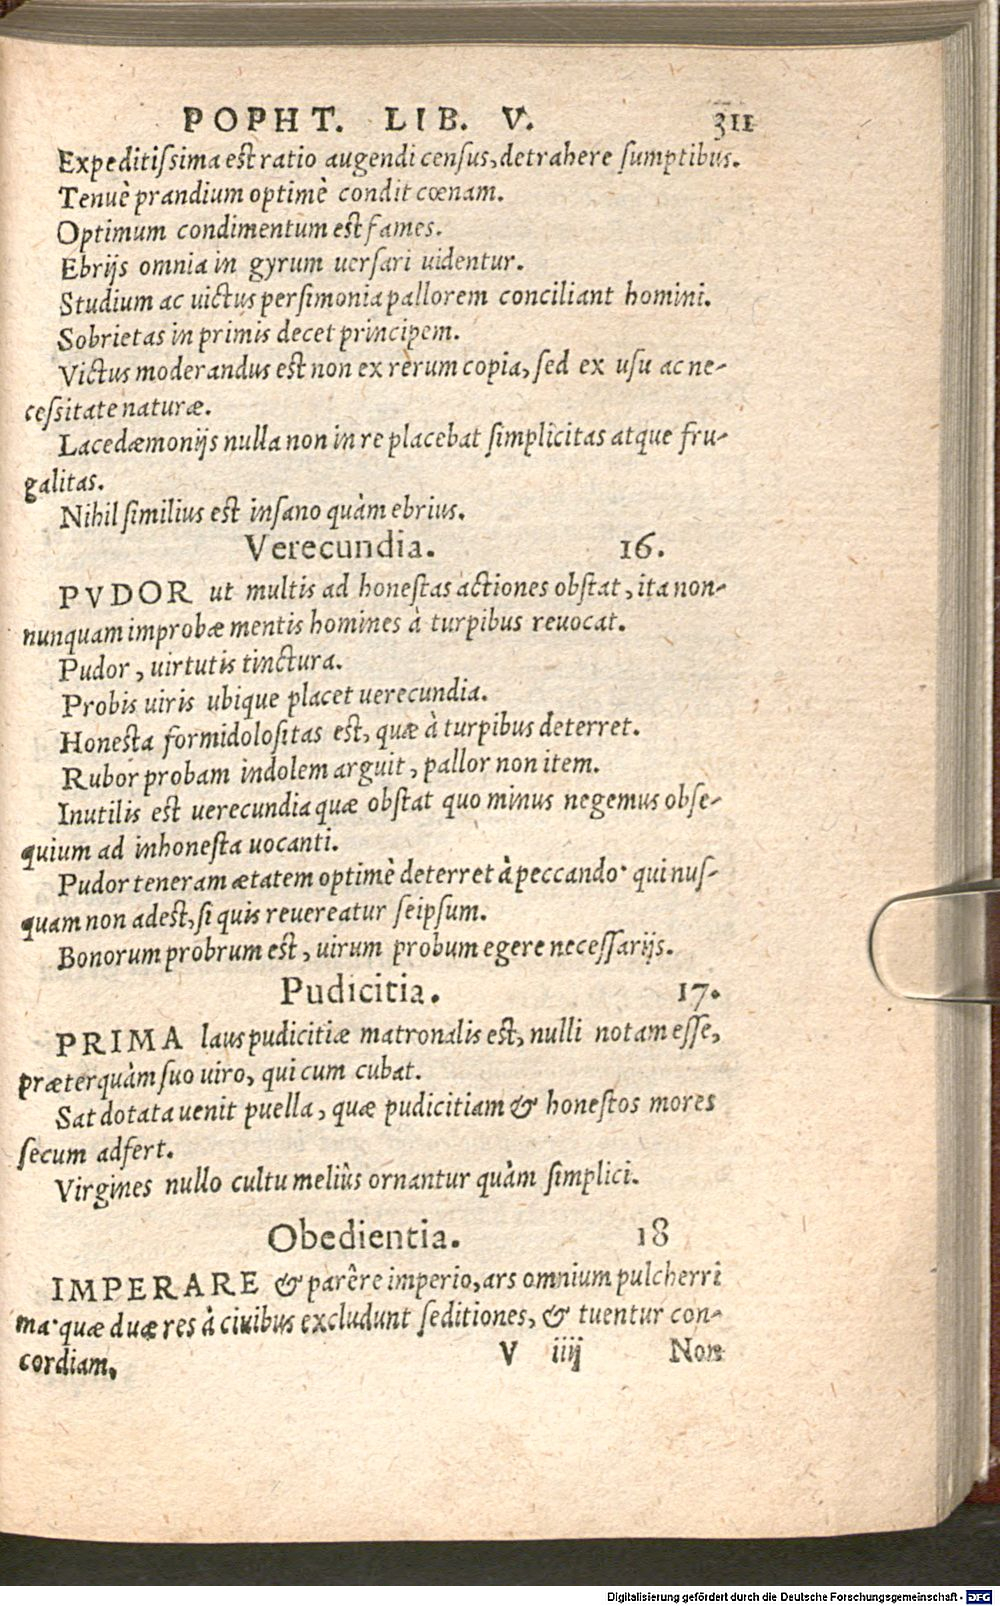 POPHT. LIB. V. 311
Expeditiſsima est ratio augendi cenſus, detrahere ſumptibus.
Tenuè prandium optimè condit cœnam.
Optimum condimentum est fames.
Ebrijs omnia in gyrum uerſari uidentur.
Studium ac uictus perſimonia pallorem conciliant homini.
Sobrietas in primis decet principem.
Victus moderandus est non ex rerum copia, ſed ex uſu ac ne-
ceſsitate naturæ.
Lacedæmonijs nulla non in re placebat ſimplicitas atque fru-
galitas.
Nihil ſimilius est inſano quàm ebrius.
Verecundia. 16.
PVDOR ut multis ad honeſtas actiones obſtat, ita non-
nunquam improbæ mentis homines à turpibus reuocat.
Pudor, uirtutis tinctura.
Probis uiris ubique placet uerecundia.
Honeſta formidoloſitas est, quæ à turpibus deterret.
Rubor probam indolem arguit, pallor non item.
Inutilis est uerecundia quæ obſtat quo minus negemus obſe-
quium ad inhoneſta uocanti.
Pudor teneram ætatem optimè deterret à peccando· qui nuſ-
quam non adest, ſi quis reuereatur ſeipſum.
Bonorum probrum est, uirum probum egere neceſſarijs.
Pudicitia. 17.
PRIMA laus pudicitiæ matronalis est, nulli notam eſſe,
præterquàm ſuo uiro, qui cum cubat.
Sat dotata uenit puella, quæ pudicitiam & honeſtos mores
ſecum adfert.
Virgines nullo cultu meliùs ornantur quàm ſimplici.
Obedientia. 18
IMPERARE & parêre imperio, ars omnium pulcherri
ma· quæ duæ res à ciuibus excludunt ſeditiones, & tuentur con-
cordiam.
V iiij Non
Digitalisierung gefördert durch die Deutsche Forschungsgemeinschaft - DFG